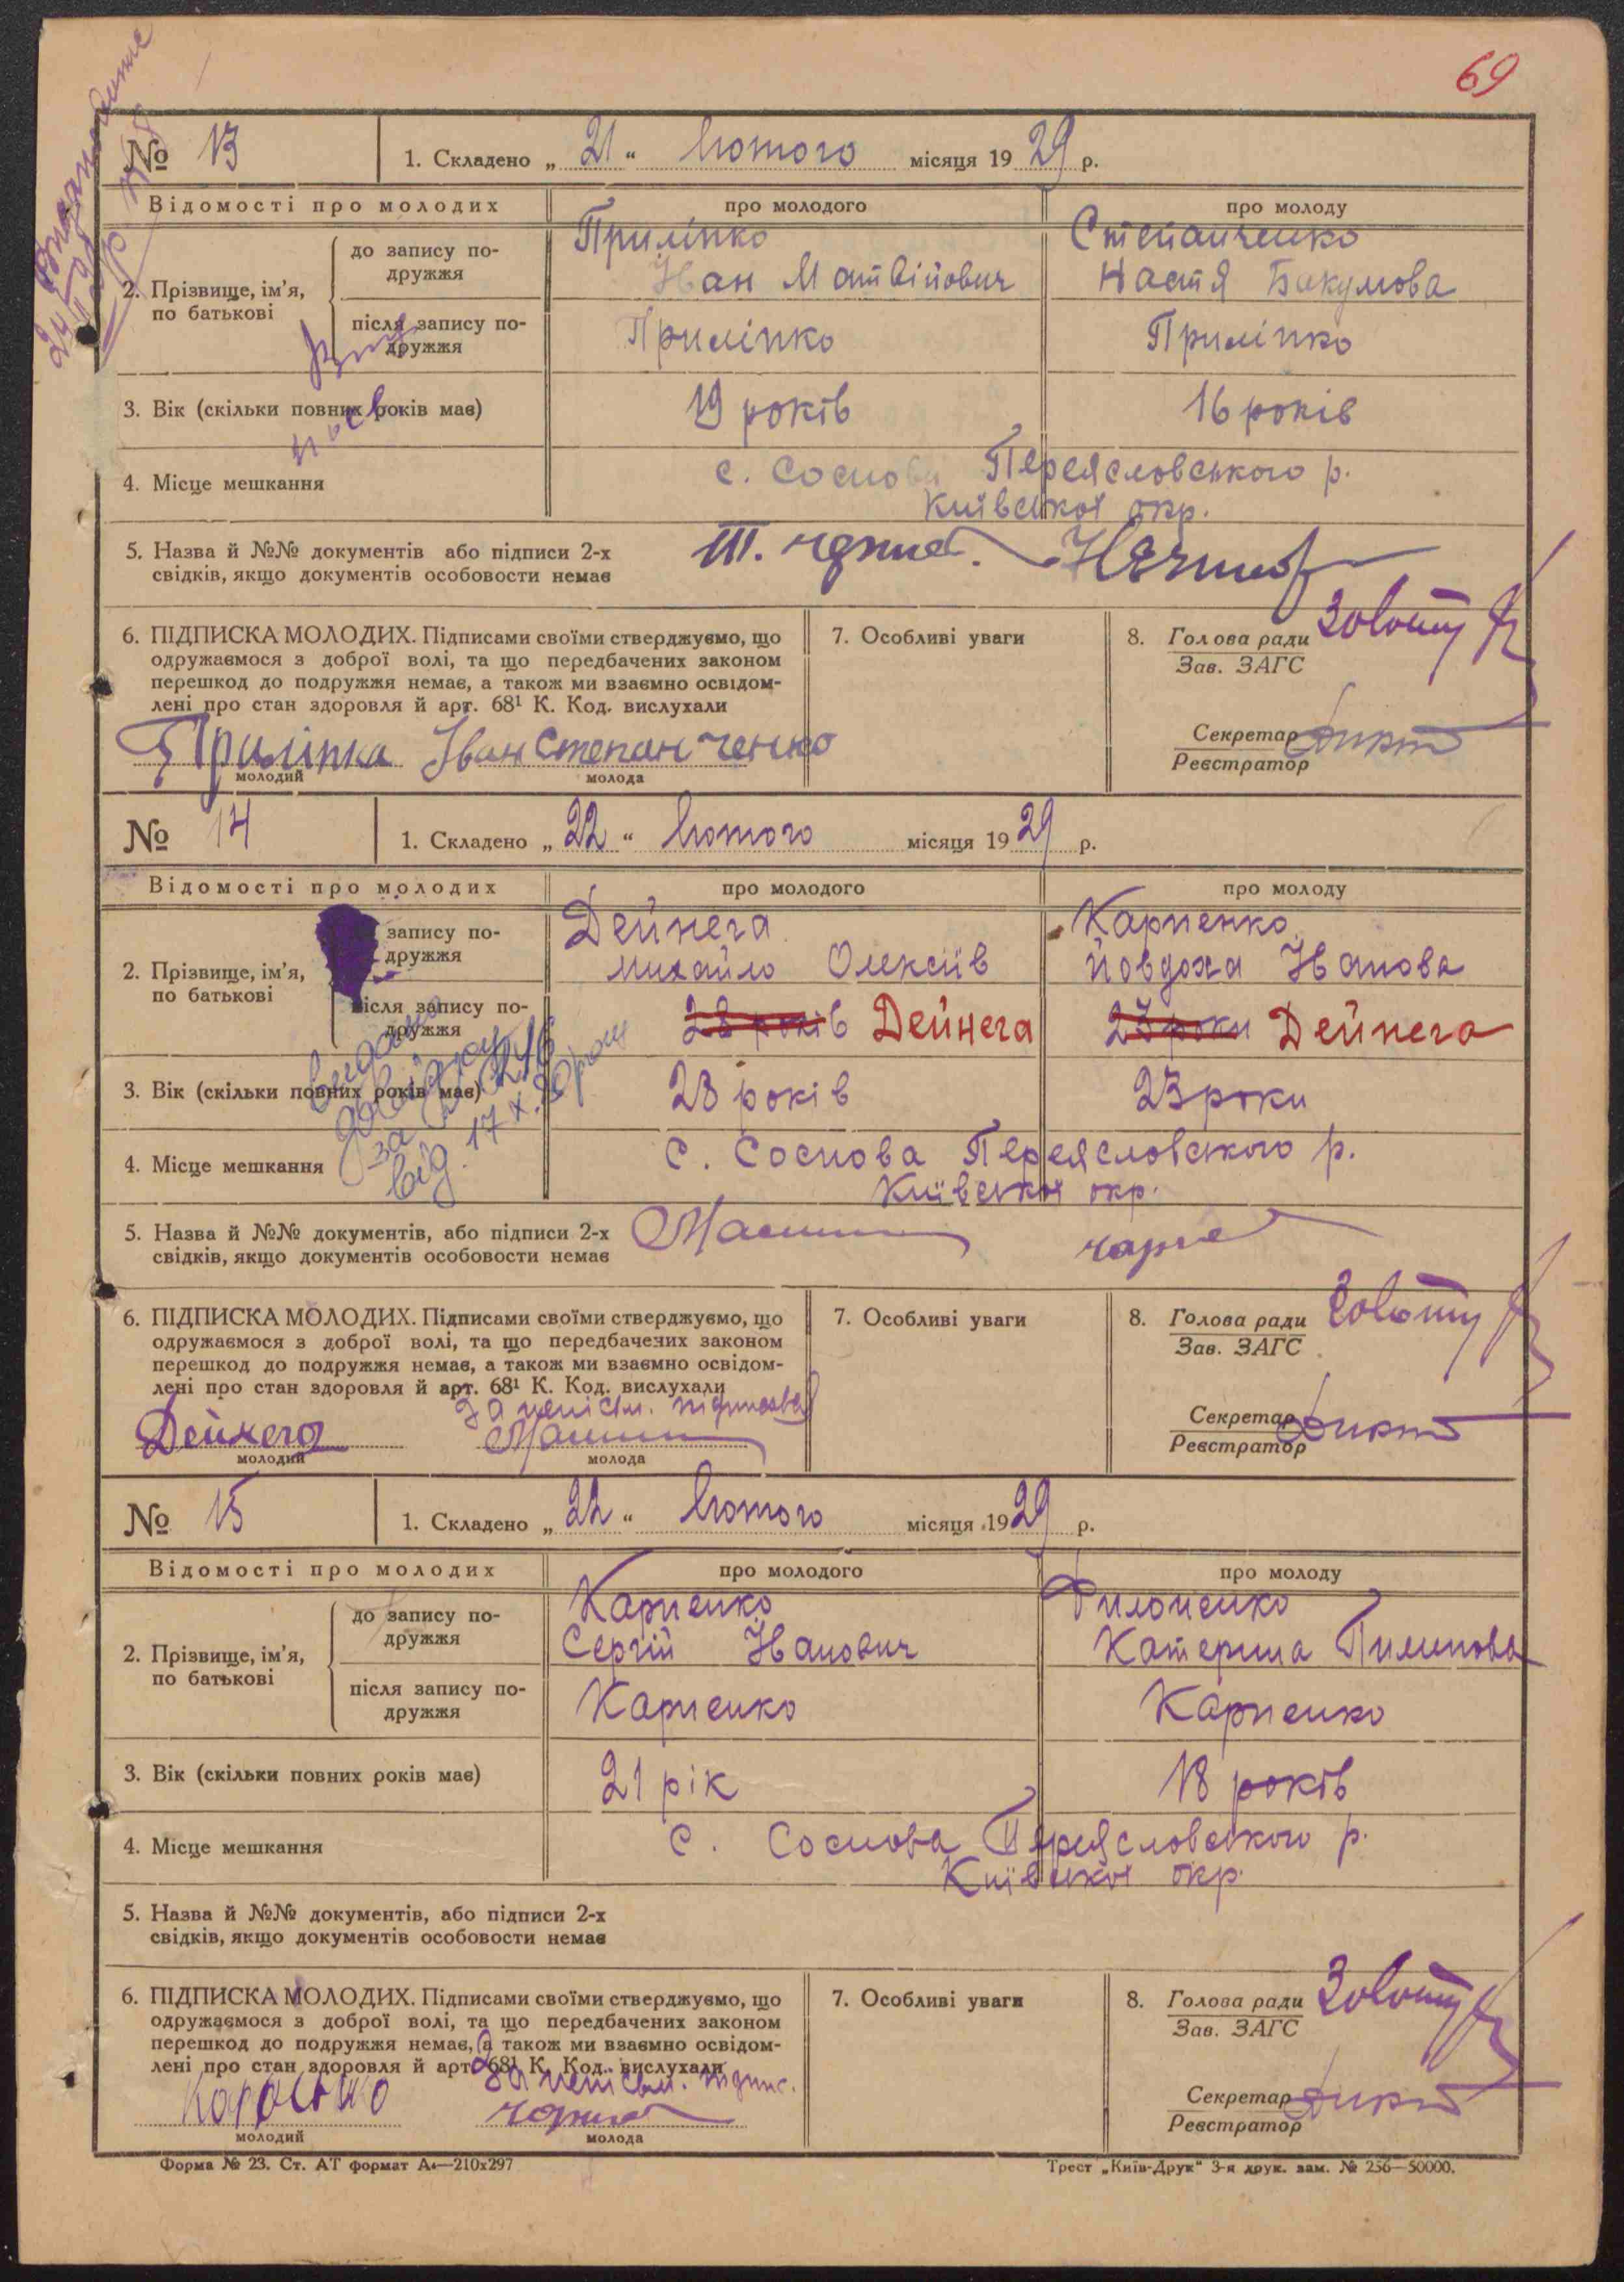 69
№ 13 1. Складено „ 21 “ Лютого місяця 19 29 р.
Відомості про молодих про молодого про молоду
2. Прізвище, ім’я, по батькові
до запису подружжя
Приліпко Степанченко
Іван Матвійович Настя Бакумова
після запису подружжя
Приліпко Приліпко
3. Вік (скільки повних років має) 19 років 16 років
4. Місце мешкання с. Соснова Переясловського р.
Київської окр.
5. Назва й №№ документів або підписи 2-х
свідків, якщо документів особовости немає
6. ПІДПИСКА МОЛОДИХ. Підписами своїми стверджуємо, що
одружаємося з доброї волі, та що передбачених законом
перешкод до подружжя немає, а також ми взаємно освідом-
лені про стан здоровля й арт. 68¹ К. Код. вислухали
Приліпка Іван Степанченко
молодий молода
7. Особливі уваги
8. Голова ради
Зав. ЗАГС
Секретар
Реєстратор
№ 14 1. Складено „ 22 “ Лютого місяця 19 29 р.
Відомості про молодих про молодого про молоду
2. Прізвище, ім’я, по батькові
запису подружжя
Дейнега Карпенко
Михайло Олексіїв Йовдоха Іванова
після запису подружжя
28 років Дейнега 23 роки Дейнега
3. Вік (скільки повних років має) 28 років 23 роки
4. Місце мешкання с. Соснова Переясловського р.
Київської окр.
видано
довідку
за №
від 17 X.
5. Назва й №№ документів, або підписи 2-х
свідків, якщо документів особовости немає
6. ПІДПИСКА МОЛОДИХ. Підписами своїми стверджуємо, що
одружаємося з доброї волі, та що передбачених законом
перешкод до подружжя немає, а також ми взаємно освідом-
лені про стан здоровля й арт. 68¹ К. Код. вислухали
за неписьм.
Дейнега
молодий молода
7. Особливі уваги
8. Голова ради
Зав. ЗАГС
Секретар
Реєстратор
№ 15 1. Складено „ 22 “ Лютого місяця 19 29 р.
Відомості про молодих про молодого про молоду
2. Прізвище, ім’я, по батькові
до запису подружжя
Карпенко Филоненко
Сергій Іванович Катерина Пилипова
після запису подружжя
Карпенко Карпенко
3. Вік (скільки повних років має) 21 рік 18 років
4. Місце мешкання с. Соснова Переясловського р.
Київської окр.
5. Назва й №№ документів, або підписи 2-х
свідків, якщо документів особовости немає
6. ПІДПИСКА МОЛОДИХ. Підписами своїми стверджуємо, що
одружаємося з доброї волі, та що передбачених законом
перешкод до подружжя немає, а також ми взаємно освідом-
лені про стан здоровля й арт. 68¹ К. Код. вислухали
за неписьм. підпис.
молодий молода
7. Особливі уваги
8. Голова ради
Зав. ЗАГС
Секретар
Реєстратор
Форма № 23. Ст. АТ формат А₄—210х297 Трест „Київ-Друк“ 3-я друк. зам. № 256—50000.